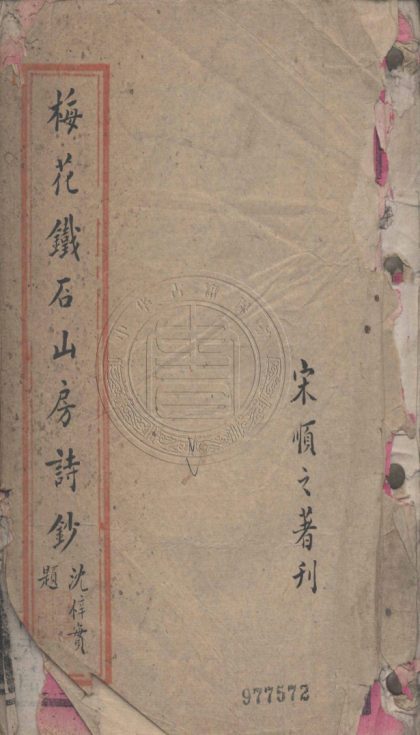 宋順之著刊
梅花鐵石山房詩鈔
沈梓賓題
977572